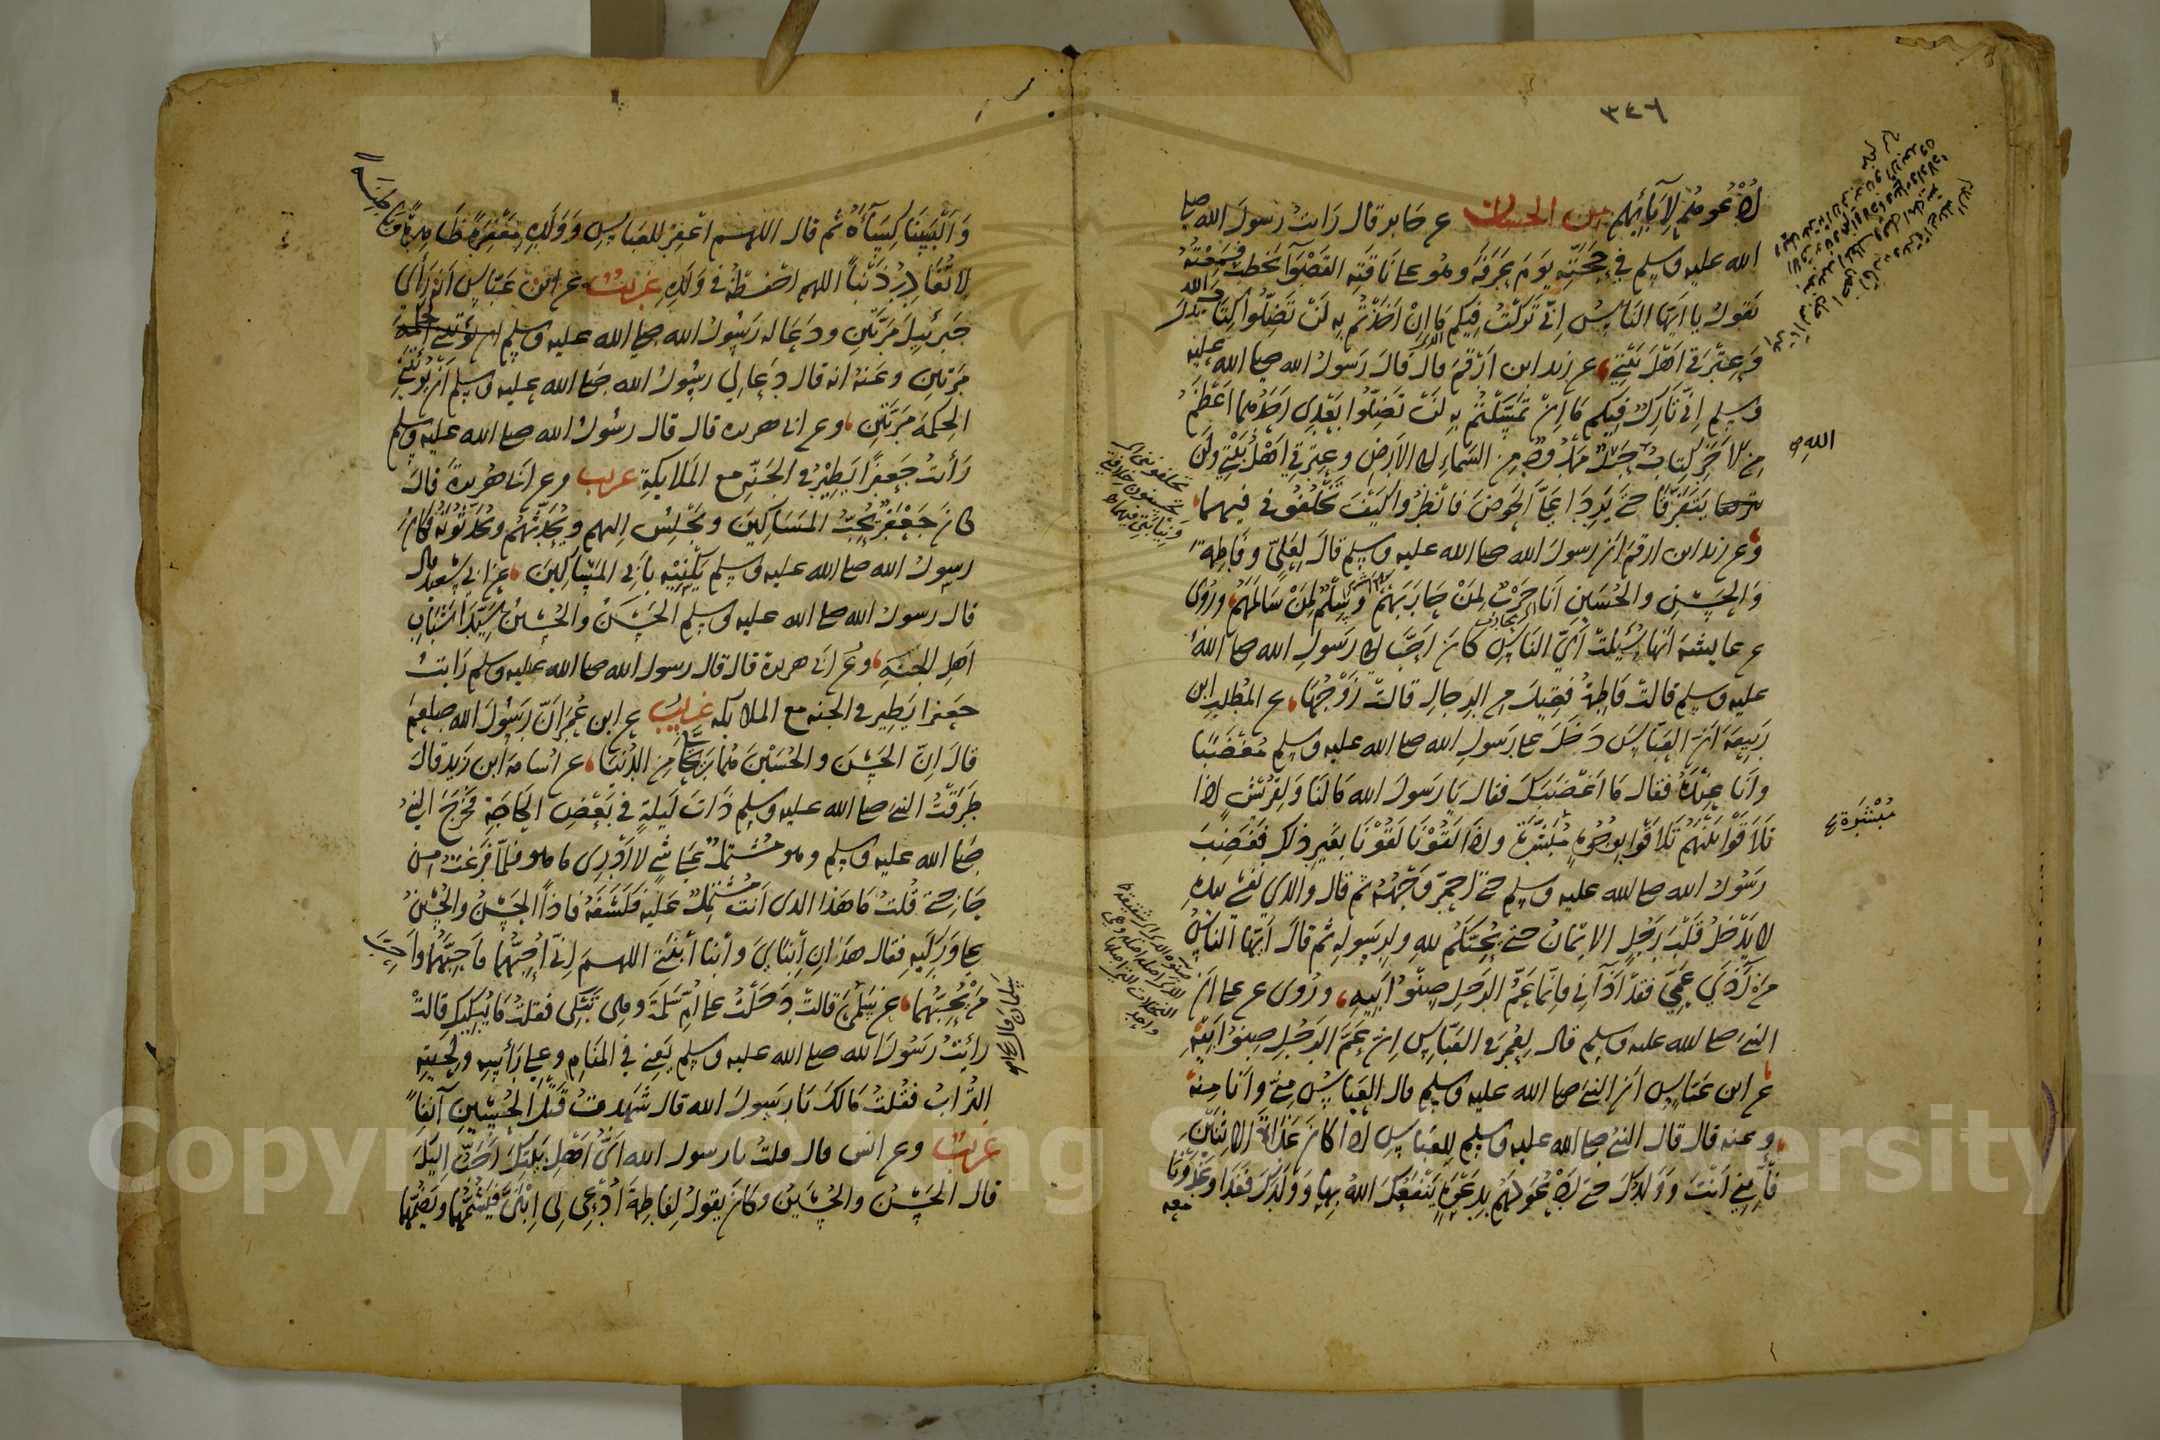 ٣٤٦
لادعوهم لآبائهم من الحسان عن جابر قال رأيت رسول الله صلى
الله عليه وسلم في حجته يوم عرفة وهو على ناقته القصواء يخطب فسمعته
يقول يا أيها الناس إني تركت فيكم ما إن أخذتم به لن تضلوا كتاب الله
وعترتي أهل بيتي عن زيد ابن أرقم قال قال رسول الله صلى الله عليه
وسلم إني تارك فيكم ما إن تمسكتم به لن تضلوا بعدي أحدهما أعظم
من الآخر كتاب الله حبل ممدود من السماء إلى الأرض وعترتي أهل بيتي ولن
يتفرقا حتى يردا علي الحوض فانظروا كيف تخلفوني فيهما
وعن زيد ابن ارقم أن رسول الله صلى الله عليه وسلم قال لعلي وفاطمة
والحسن والحسين أنا حرب لمن حاربهم وسلم لمن سالمهم وروى
عن عايشة أنها سئلت أي الناس كان أحب إلى رسول الله صلى الله
عليه وسلم قالت فاطمة فقيل من الرجال قالت زوجها عن المطلب ابن
ربيعة أن العباس دخل على رسول الله صلى الله عليه وسلم مغضبا
وأنا عنده فقال ما أغضبك فقال يا رسول الله ما لنا ولقريش إذا
تلاقوا بينهم تلاقوا بوجوه مبشرة وإذا لقونا لقونا بغير ذلك فغضب
رسول الله صلى الله عليه وسلم حتى احمر وجهه ثم قال والذي نفسي بيده
لا يدخل قلب رجل الإيمان حتى يحبكم لله ولرسوله ثم قال أيها الناس
من آذى عمي فقد آذاني فإنما عم الرجل صنو أبيه وروى عن علي أن
النبي صلى الله عليه وسلم قال لعمر في العباس إن عم الرجل صنو أبيه
عن ابن عباس أن النبي صلى الله عليه وسلم قال العباس مني وأنا منه
وعنه قال قال النبي صلى الله عليه وسلم للعباس إذا كان غداة الاثنين
فأتني أنت وولدك حتى أدعو لهم بدعوة ينفعك الله بها وولدك فغدا وغدونا
معه
الله
مبشرة
وألبسنا كساءه ثم قال اللهم اغفر للعباس وولده مغفرة ظاهرة وباطنة
لا تغادر ذنبا اللهم احفظه في ولده غريب عن ابن عباس أنه رأى
جبرئيل مرتين ودعا له رسول الله صلى الله عليه وسلم
مرتين وعنه انه قال دعا لي رسول الله صلى الله عليه وسلم أن يؤتيني
الحكمة مرتين وعن ابي هريرة قال قال رسول الله صلى الله عليه وسلم
رأيت جعفرا يطير في الجنة مع الملايكة غريب وعن أبي هريرة قال
كان جعفر يحب المساكين ويجلس إليهم ويحدثهم ويحدثونه وكان
رسول الله صلى الله عليه وسلم يكنيه بأبي المساكين عن أبي سعيد قال
قال رسول الله صلى الله عليه وسلم الحسن والحسين سيدا شباب
أهل الجنة وعن أبي هريرة قال قال رسول الله صلى الله عليه وسلم رأيت
جعفرا يطير في الجنه مع الملايكه غريب عن ابن عمر أن رسول الله صلعم
قال إن الحسن والحسين هما ريحاني من الدنيا عن أسامة ابن زيد قال
طرقت النبي صلى الله عليه وسلم ذات ليلة في بعض الحاجة فخرج النبي
صلى الله عليه وسلم وهو مشتمل على شيء لا أدري ما هو فلما فرغت من
حاجتي قلت ما هذا الذي أنت مشتمل عليه فكشفه فإذا الحسن والحسين
على وركيه فقال هذان ابناي وأبنا ابنتي اللهم إني أحبهما فأحبهما وأحب
من يحبهما عن سلمى قالت دخلت على أم سلمة وهي تبكي فقلت ما يبكيك قالت
رأيت رسول الله صلى الله عليه وسلم يعني في المنام وعلى رأسه ولحيته
التراب فقلت مالك يا رسول الله قال شهدت قتل الحسين آنفا
غريب وعن انس قال قلت يا رسول الله أي أهل بيتك أحب إليك
قال الحسن والحسين وكان يقول لفاطمة ادعي لي ابني فيشمهما ويضمهما
Copyright © King Saud University